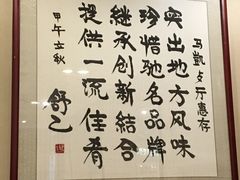 马凯夕示惠存
突出地方风味
珍惜驰名品牌
继承创新结合
提供一流佳肴
甲午立秋
舒乙